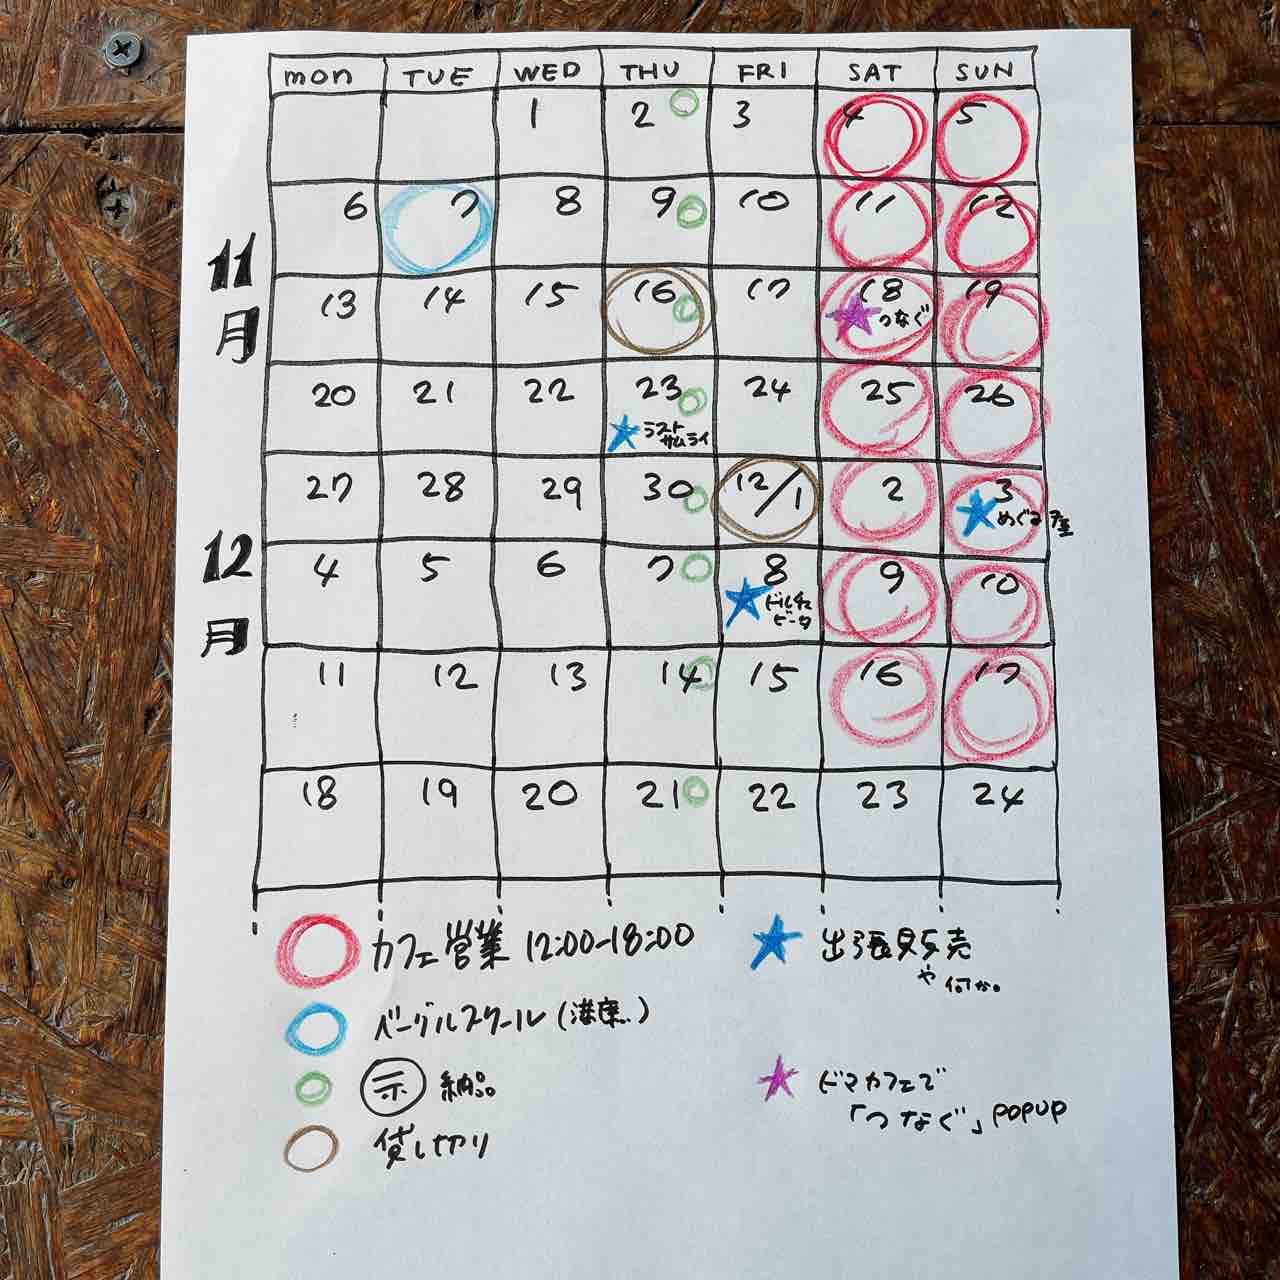 mon TUE WED THU FRI SAT SUN
1 2 3 4 5
6 7 8 9 10 11 12
11月
13 14 15 16 17 18 19
つなぐ
20 21 22 23 24 25 26
ラスト
サムライ
27 28 29 30 12/1 2 3
めぐる
12月
4 5 6 7 8 9 10
ドルチェ
ビータ
11 12 13 14 15 16 17
18 19 20 21 22 23 24
カフェ営業 12:00-18:00
ベーグルスクール(満席..)
示 納品
貸し切り
出張販売
や何か。
ドマカフェで
「つなぐ」POPUP